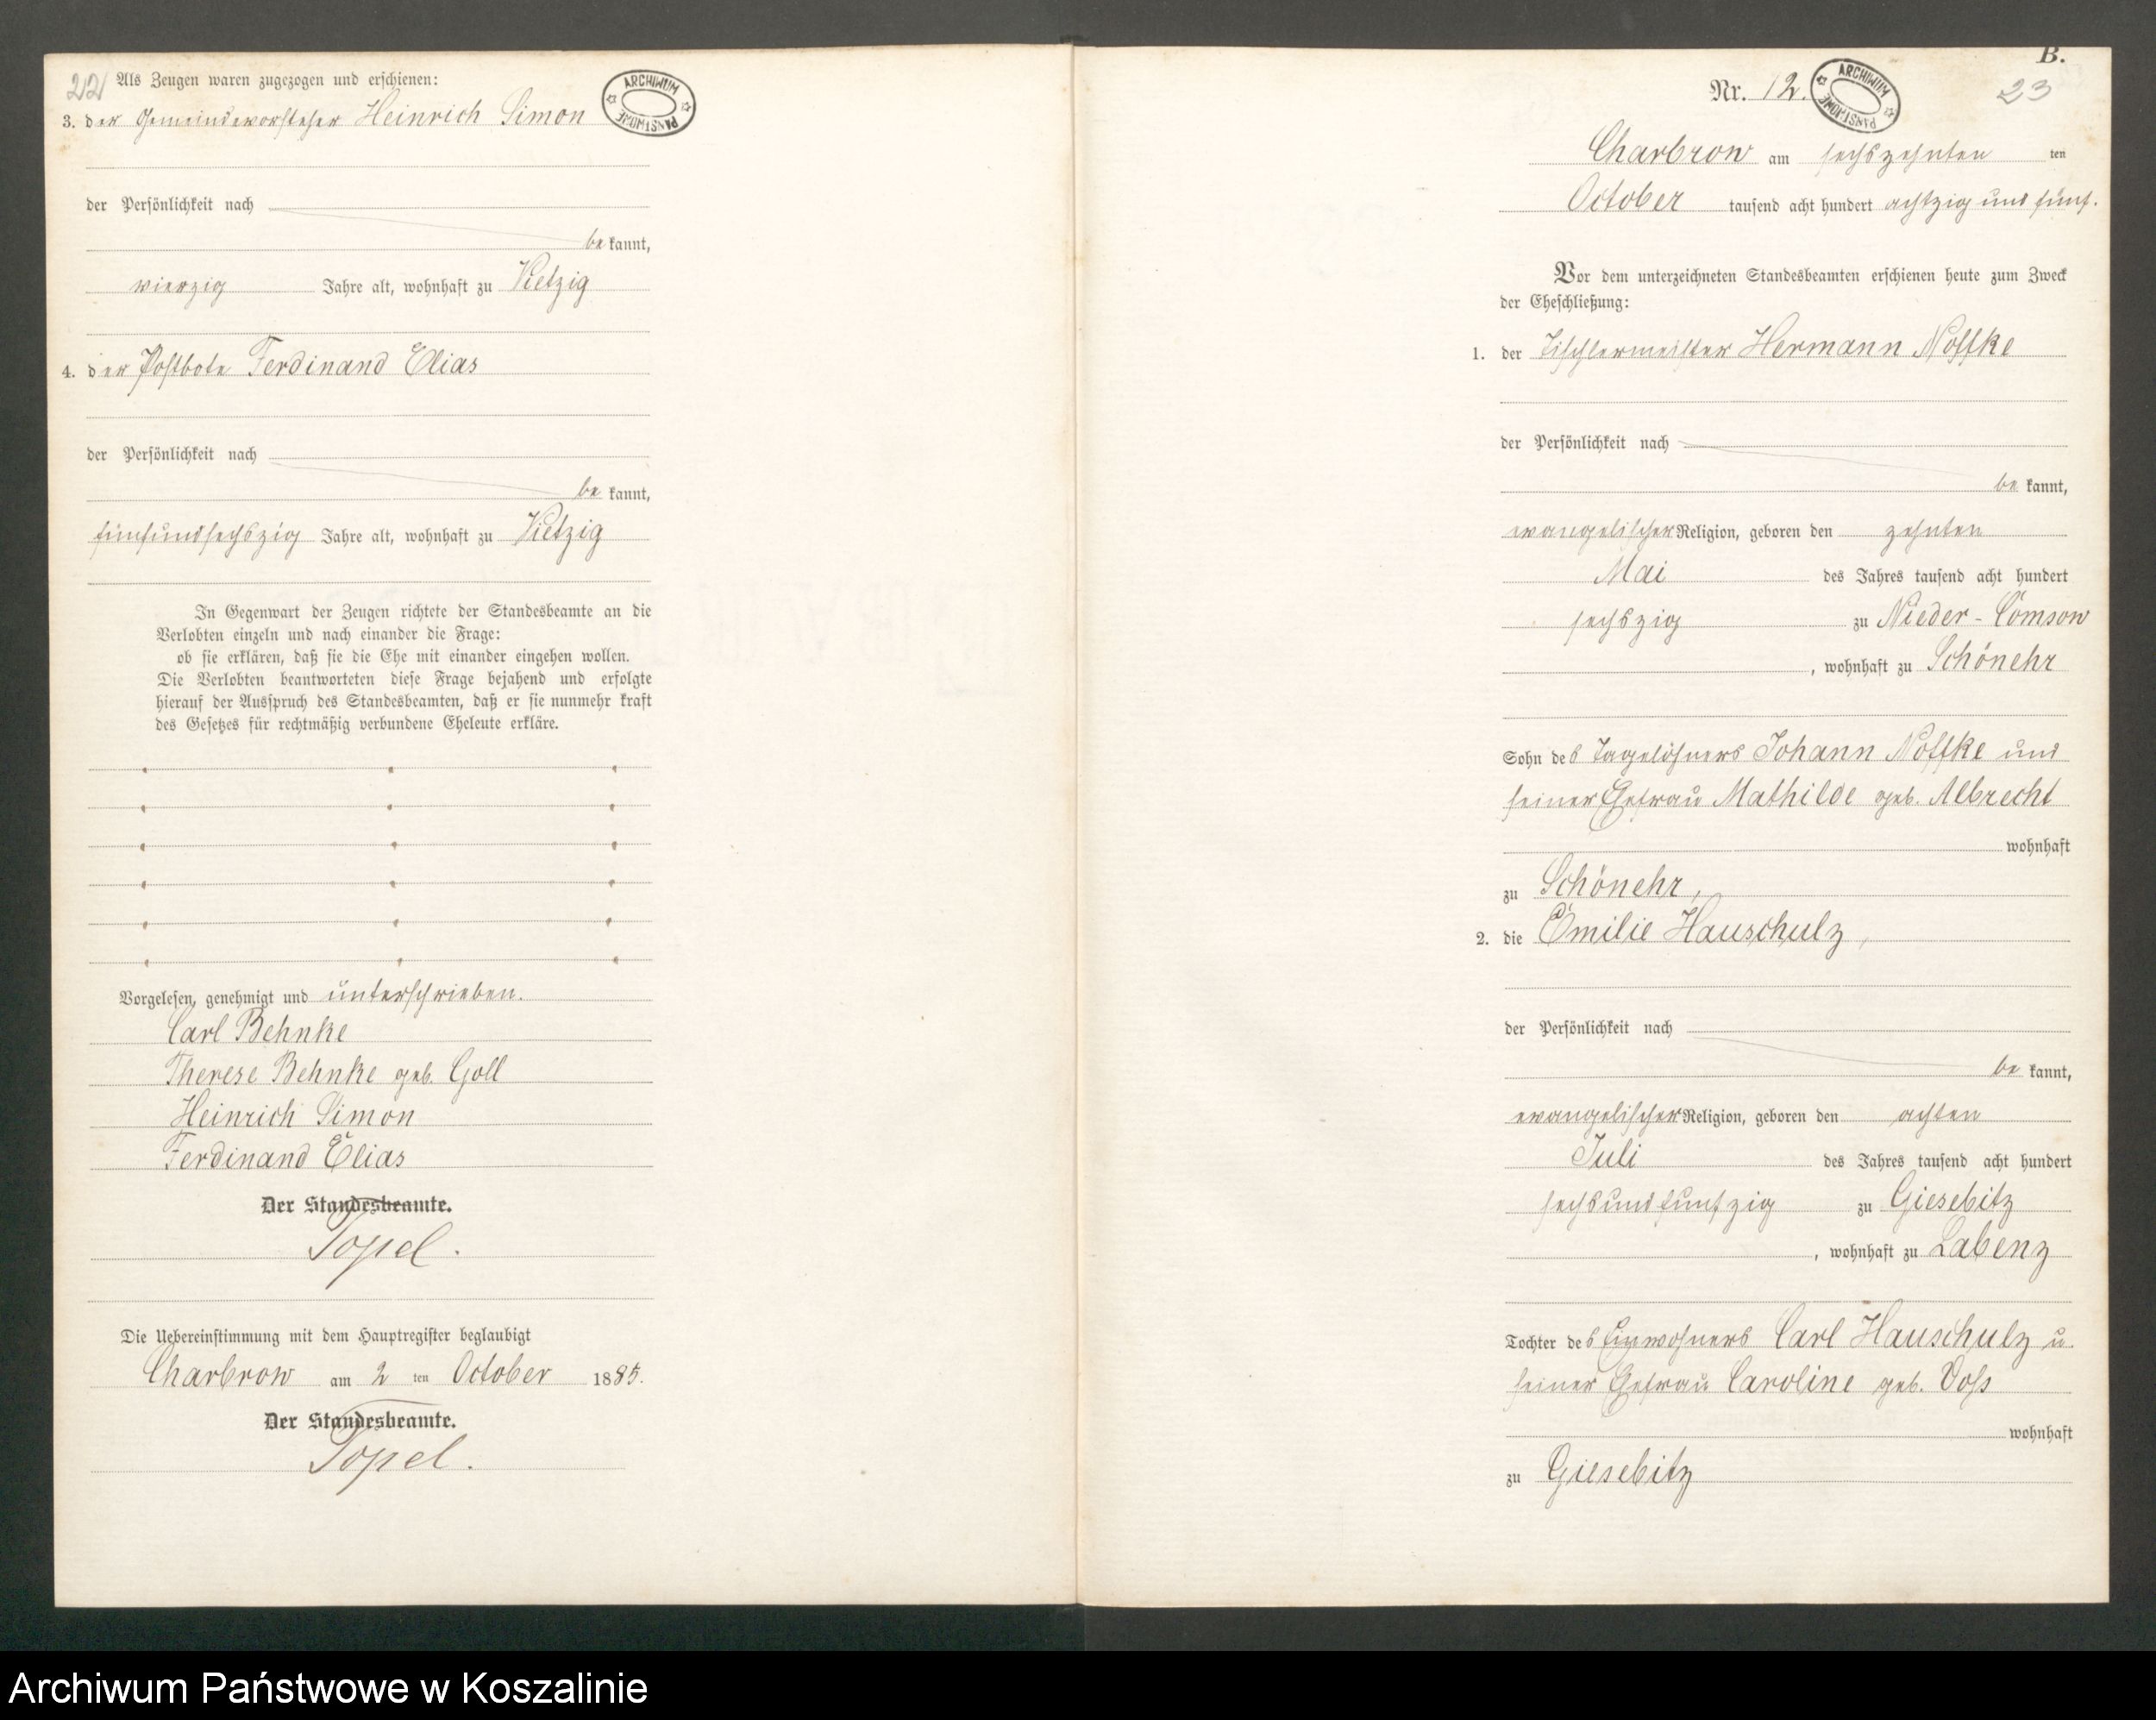 22 Als Zeugen waren zugezogen und erschienen:
ARCHIWUM PAŃSTWOWE
3. der Gemeindevorsteher Heinrich Simon
der Persönlichkeit nach
be kannt,
vierzig Jahre alt, wohnhaft zu Vietzig
4. der Postbote Ferdinand Elias
der Persönlichkeit nach
be kannt,
fünfundsechszig Jahre alt, wohnhaft zu Vietzig
In Gegenwart der Zeugen richtete der Standesbeamte an die
Verlobten einzeln und nach einander die Frage:
ob sie erklären, daß sie die Ehe mit einander eingehen wollen.
Die Verlobten beantworteten diese Frage bejahend und erfolgte
hierauf der Ausspruch des Standesbeamten, daß er sie nunmehr kraft
des Gesetzes für rechtmäßig verbundene Eheleute erkläre.
Vorgelesen, genehmigt und unterschrieben.
Carl Behnke
Therese Behnke geb. Goll
Heinrich Simon
Ferdinand Elias
Der Standesbeamte.
Topel.
Die Uebereinstimmung mit dem Hauptregister beglaubigt
Charbrow am 2 ten October 1885.
Der Standesbeamte.
Topel.
B.
Nr. 12. 23
ARCHIWUM PAŃSTWOWE
Charbrow am sechszehnten ten
October tausend acht hundert achtzig und fünf.
Vor dem unterzeichneten Standesbeamten erschienen heute zum Zweck
der Eheschließung:
1. der Tischlermeister Hermann Noffke
der Persönlichkeit nach
be kannt,
evangelischer Religion, geboren den zehnten
Mai des Jahres tausend acht hundert
sechszig zu Nieder-Comsow
, wohnhaft zu Schönehr
Sohn des Tagelöhners Johann Noffke und
seiner Ehefrau Mathilde geb. Albrecht
wohnhaft
zu Schönehr,
2. die Emilie Hauschulz,
der Persönlichkeit nach
be kannt,
evangelischer Religion, geboren den achten
Juli des Jahres tausend acht hundert
sechsundfünfzig zu Giesebitz
, wohnhaft zu Labenz
Tochter des Einwohners Carl Hauschulz u.
seiner Ehefrau Caroline geb. Voß
wohnhaft
zu Giesebitz
Archiwum Państwowe w Koszalinie